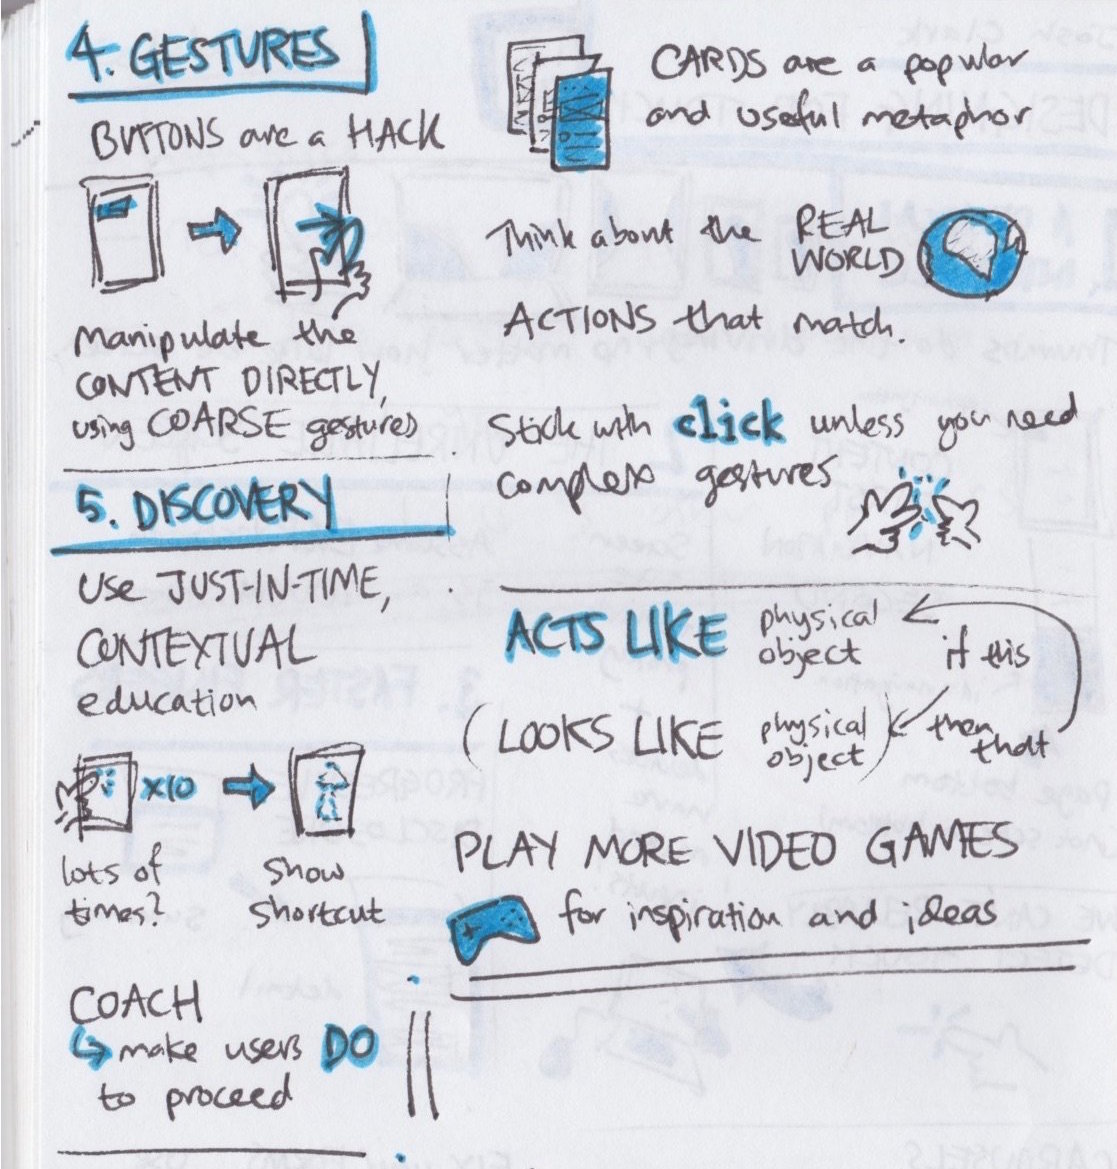 4. GESTURES
BUTTONS are a HACK
Manipulate the
CONTENT DIRECTLY,
using COARSE gestures
CARDS are a popular
and useful metaphor
Think about the REAL
WORLD
ACTIONS that match.
Stick with click unless you need
complex gestures
5. DISCOVERY
Use JUST-IN-TIME,
CONTEXTUAL
education
x10
lots of
times?
show
shortcut
COACH
make users DO
to proceed
ACTS LIKE physical
object
if this
(LOOKS LIKE physical
object)
then
that
PLAY MORE VIDEO GAMES
for inspiration and ideas